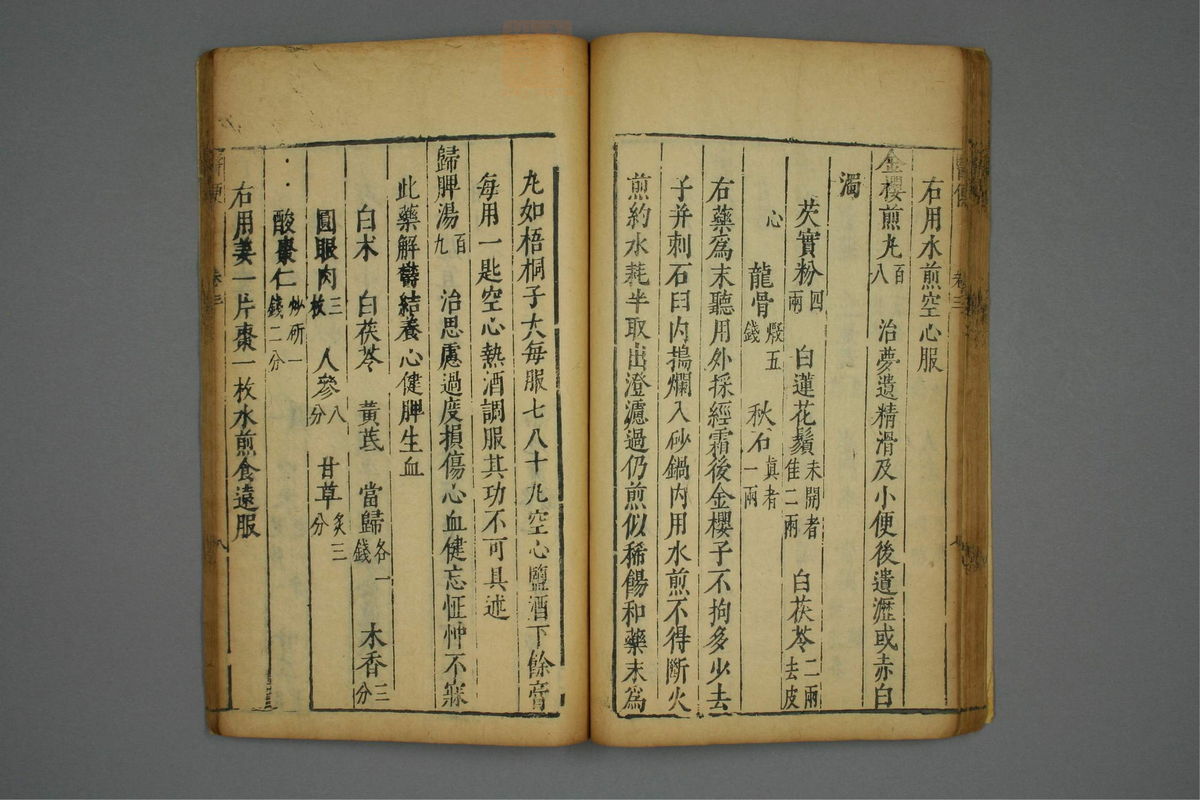 右用水煎空心服
金櫻煎丸百八 治夢遺精滑及小便後遺瀝或赤白
濁
芡實粉四兩 白蓮花鬚未開者佳二兩 白茯苓二兩去皮
心 龍骨煅五錢 秋石真者一兩
右藥爲末聽用外採經霜後金櫻子不拘多少去
子并刺石臼内搗爛入砂鍋内用水煎不得斷火
煎約水耗半取出澄濾過仍煎似稀餳和藥末爲
丸如梧桐子大每服七八十丸空心鹽酒下餘膏
每用一匙空心熱酒調服其功不可具述
歸脾湯百九 治思慮過度損傷心血健忘怔忡不寐
此藥解鬱結養心健脾生血
白朮 白茯苓 黃芪 當歸各一錢 木香三分
圓眼肉三枚 人參八分 甘草炙三分
酸棗仁炒研一錢二分
右用姜一片棗一枚水煎食遠服
卷三
八